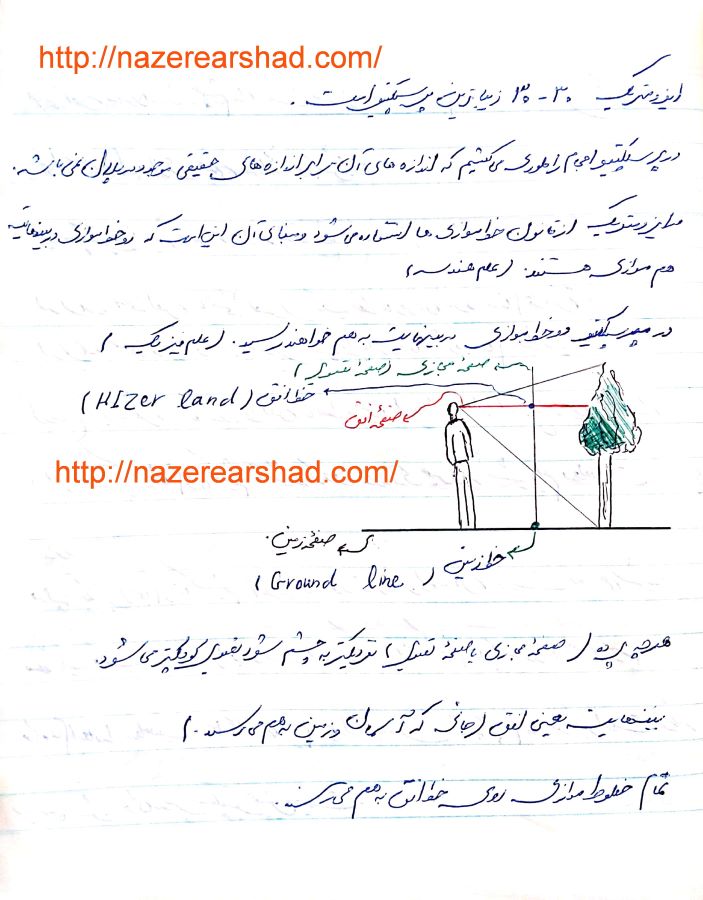 http://nazerearshad.com/
ایزومتریک ۳۰ - ۳۰ زیباترین پرسپکتیو است.
در پرسپکتیو احجام را طوری می کشیم که اندازه های آن برابر اندازه های حقیقی موجود در پلان نمی باشد.
در ایزومتریک از قانون خط موازی ها استفاده می شود و مبنای آن این است که دو خط موازی در بینهایت
هم موازی هستند. (علم هندسه)
در پرسپکتیو دو خط موازی در بینهایت به هم خواهند رسید. (علم فیزیک)
صفحهٔ مجازی (صفحهٔ تصویر)
خط افق (HIZer land)
صفحهٔ افق
http://nazerearshad.com/
صفحه زمین.
خط زمین
(Ground line)
هرچه پرده (صفحهٔ مجازی یا صفحهٔ تصویر) نزدیکتر به چشم شود تصویر کوچکتر می شود.
بینهایت یعنی افق (جائی که آسمان و زمین به هم می رسند.)
تمام خطوط موازی روی خط افق به هم می رسند.